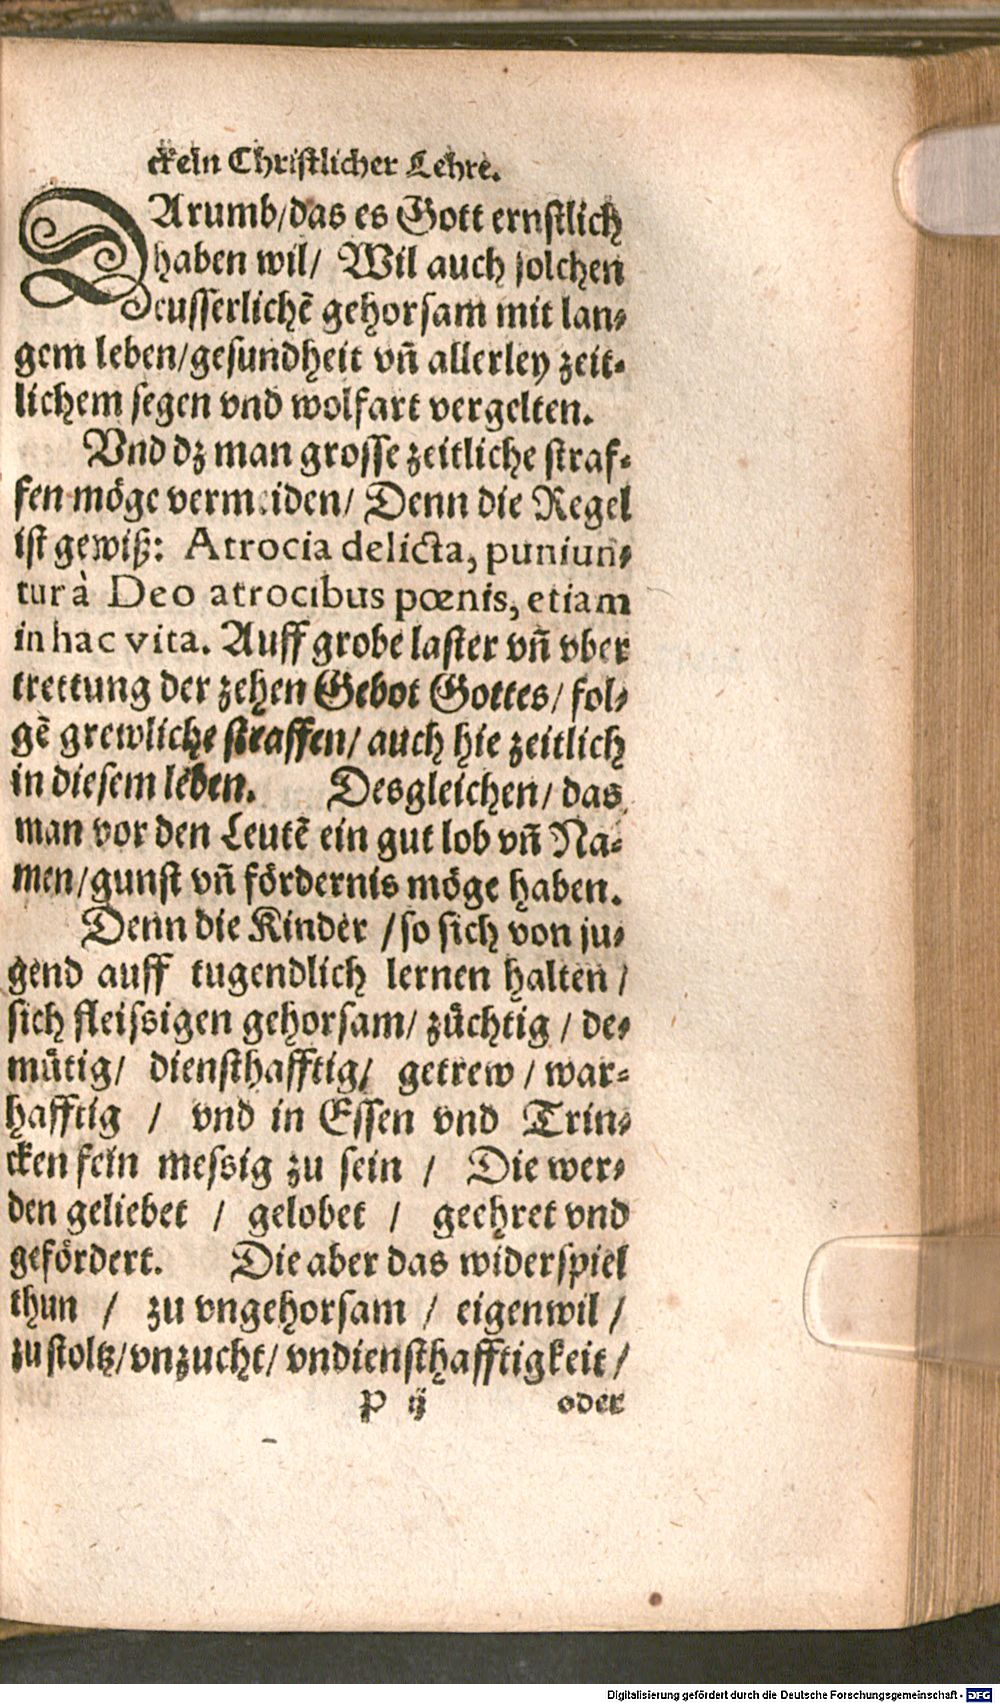 ckein Christlicher Lehre.
DArumb/das es Gott ernstlich
haben wil/ Wil auch solchen
eusserlichẽ gehorsam mit lan-
gem leben/gesundheit vñ allerley zeit-
lichem segen vnd wolfart vergelten.
Vnd dz man grosse zeitliche straf-
fen möge vermeiden/ Denn die Regel
ist gewiß: Atrocia delicta, puniun-
tur à Deo atrocibus pœnis, etiam
in hac vita. Auff grobe laster vñ vber
trettung der zehen Gebot Gottes/ fol-
gẽ grewliche straffen/ auch hie zeitlich
in diesem leben. Desgleichen/ das
man vor den Leutẽ ein gut lob vñ Na-
men/gunst vñ fördernis möge haben.
Denn die Kinder /so sich von ju-
gend auff tugendlich lernen halten /
sich fleissigen gehorsam/ züchtig / de-
mütig/ diensthafftig/ getrew / war-
hafftig / vnd in Essen vnd Trin-
cken fein messig zu sein / Die wer-
den geliebet / gelobet / geehret vnd
gefördert. Die aber das widerspiel
thun / zu vngehorsam / eigenwil /
zu stoltz/vnzucht/ vndiensthafftigkeit /
P ij oder
Digitalisierung gefördert durch die Deutsche Forschungsgemeinschaft - DFG